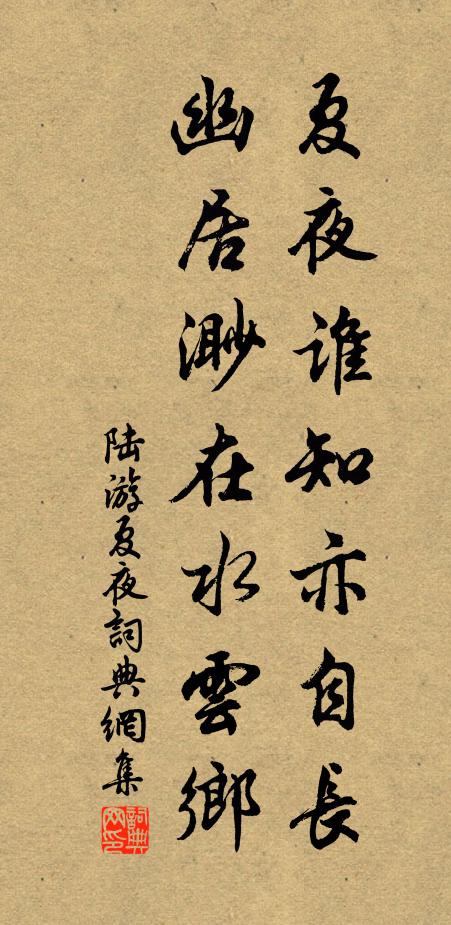 夏夜誰知亦自長
幽居渺在水雲鄉
陆游夏夜詞典網集
詞典网印